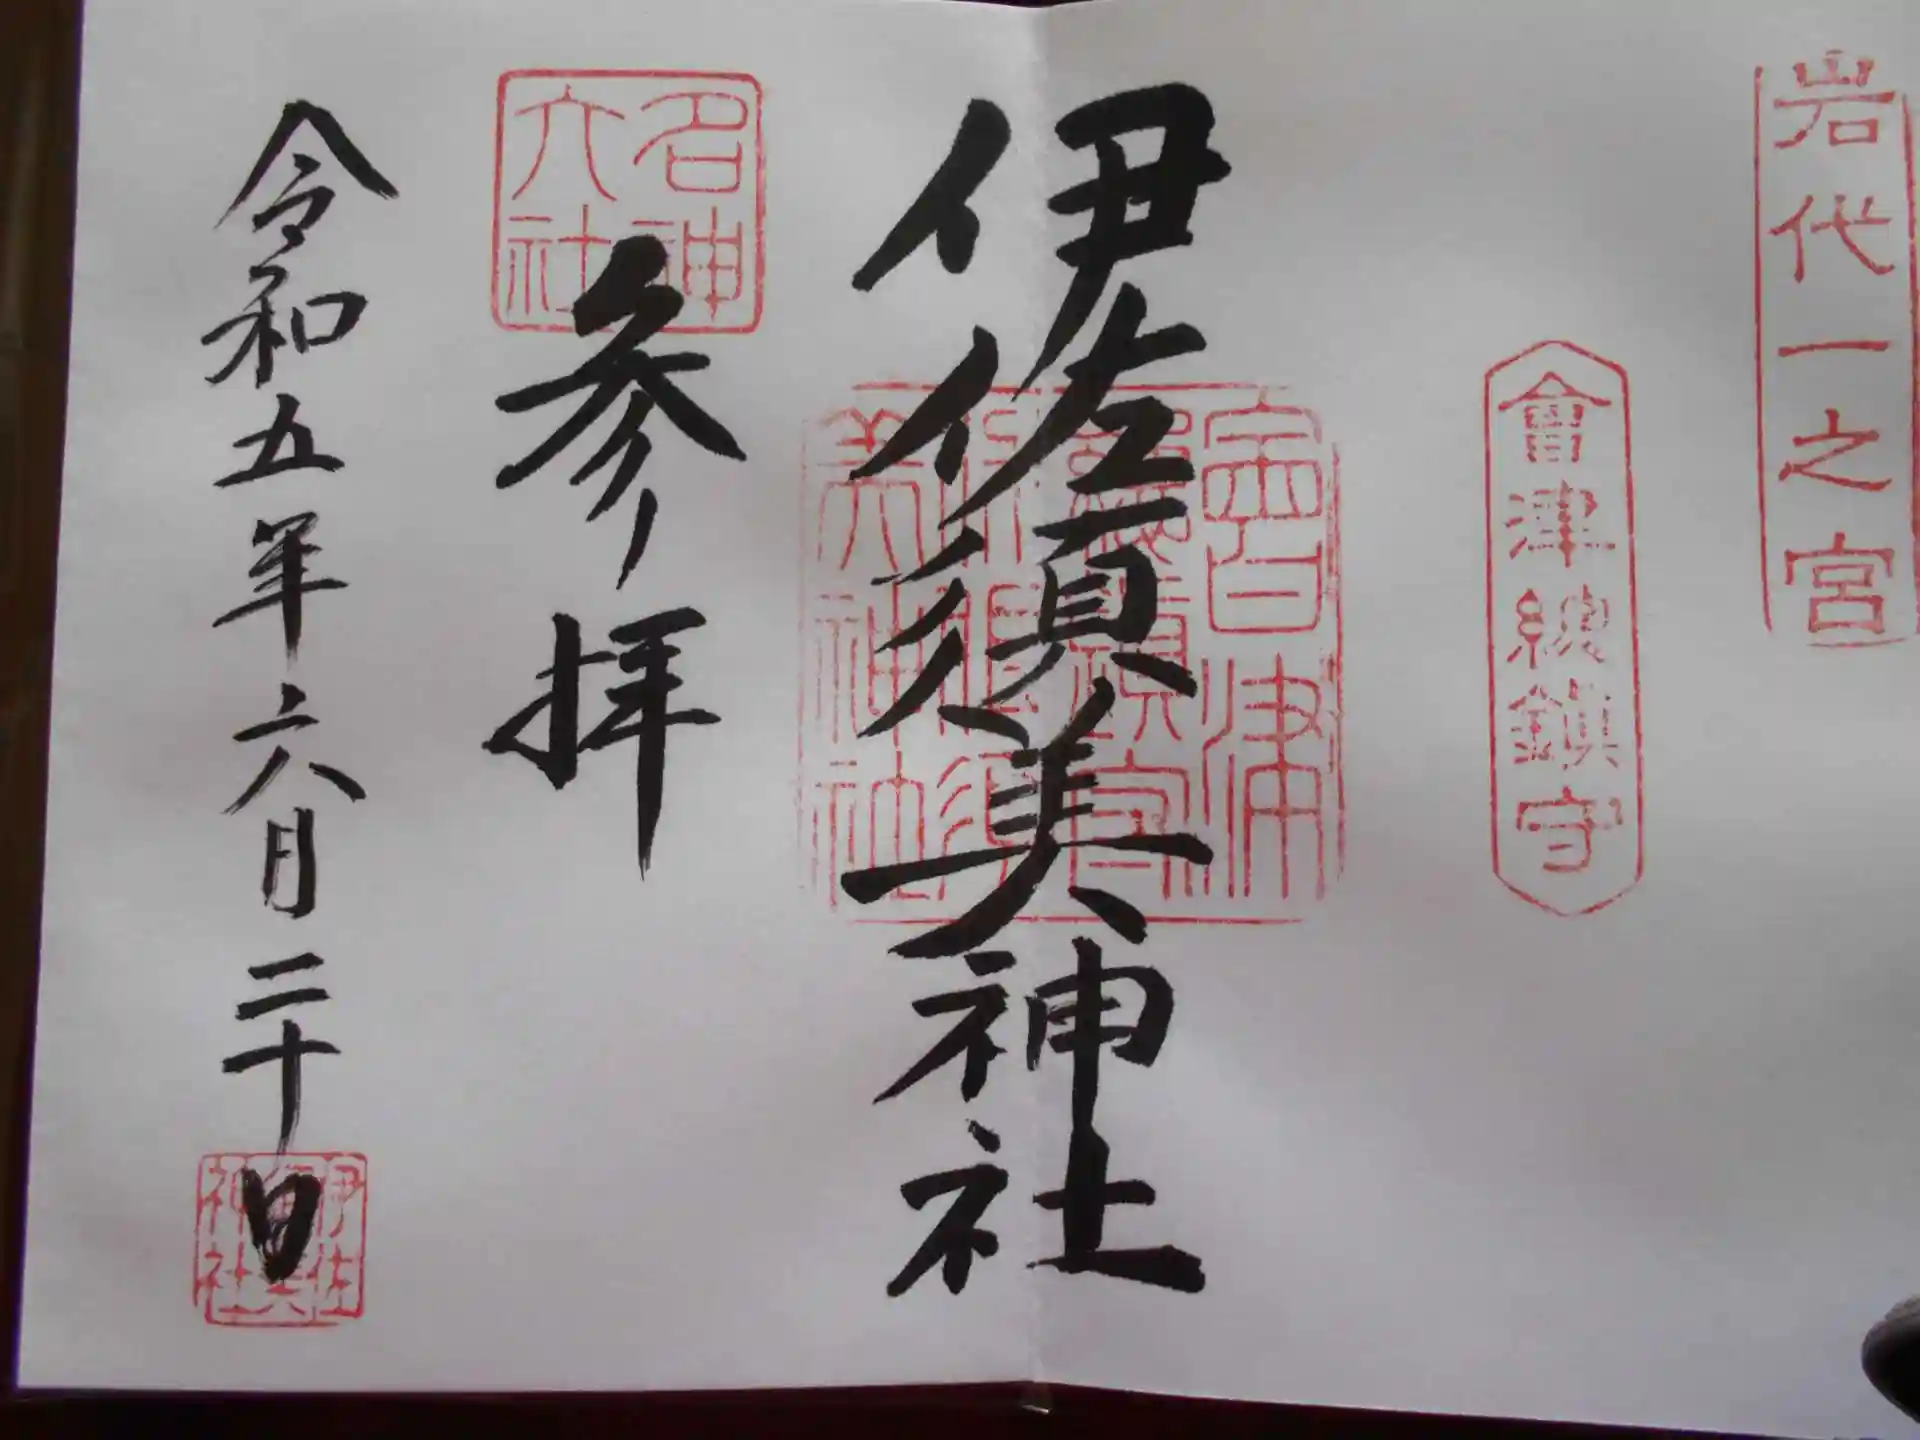 岩代一之宮
會津總鎮守
伊佐須美神社
會津
總鎮守
伊佐須
美神社
名神
大社
参拝
令和五年六月二十日
伊佐
須美
神社